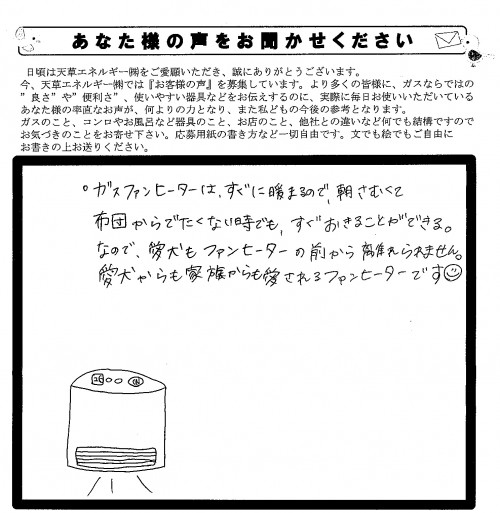 あなた様の声をお聞かせください
日頃は天草エネルギー㈱をご愛顧いただき、誠にありがとうございます。
今、天草エネルギー㈱では『お客様の声』を募集しています。より多くの皆様に、ガスならではの
”良さ”や”便利さ”、使いやすい器具などをお伝えするのに、実際に毎日お使いいただいている
あなた様の率直なお声が、何よりの力となり、また私どもの今後の参考となります。
ガスのこと、コンロやお風呂など器具のこと、お店のこと、他社との違いなど何でも結構ですので
お気づきのことをお寄せ下さい。応募用紙の書き方など一切自由です。文でも絵でもご自由に
お書きの上お送りください。
。ガスファンヒーターは、すぐに暖まるので、朝さむくて
布団からでたくない時でも、すぐおきることができる。
なので、愛犬もファンヒーターの前から離れられません。
愛犬からも家族からも愛されるファンヒーターです